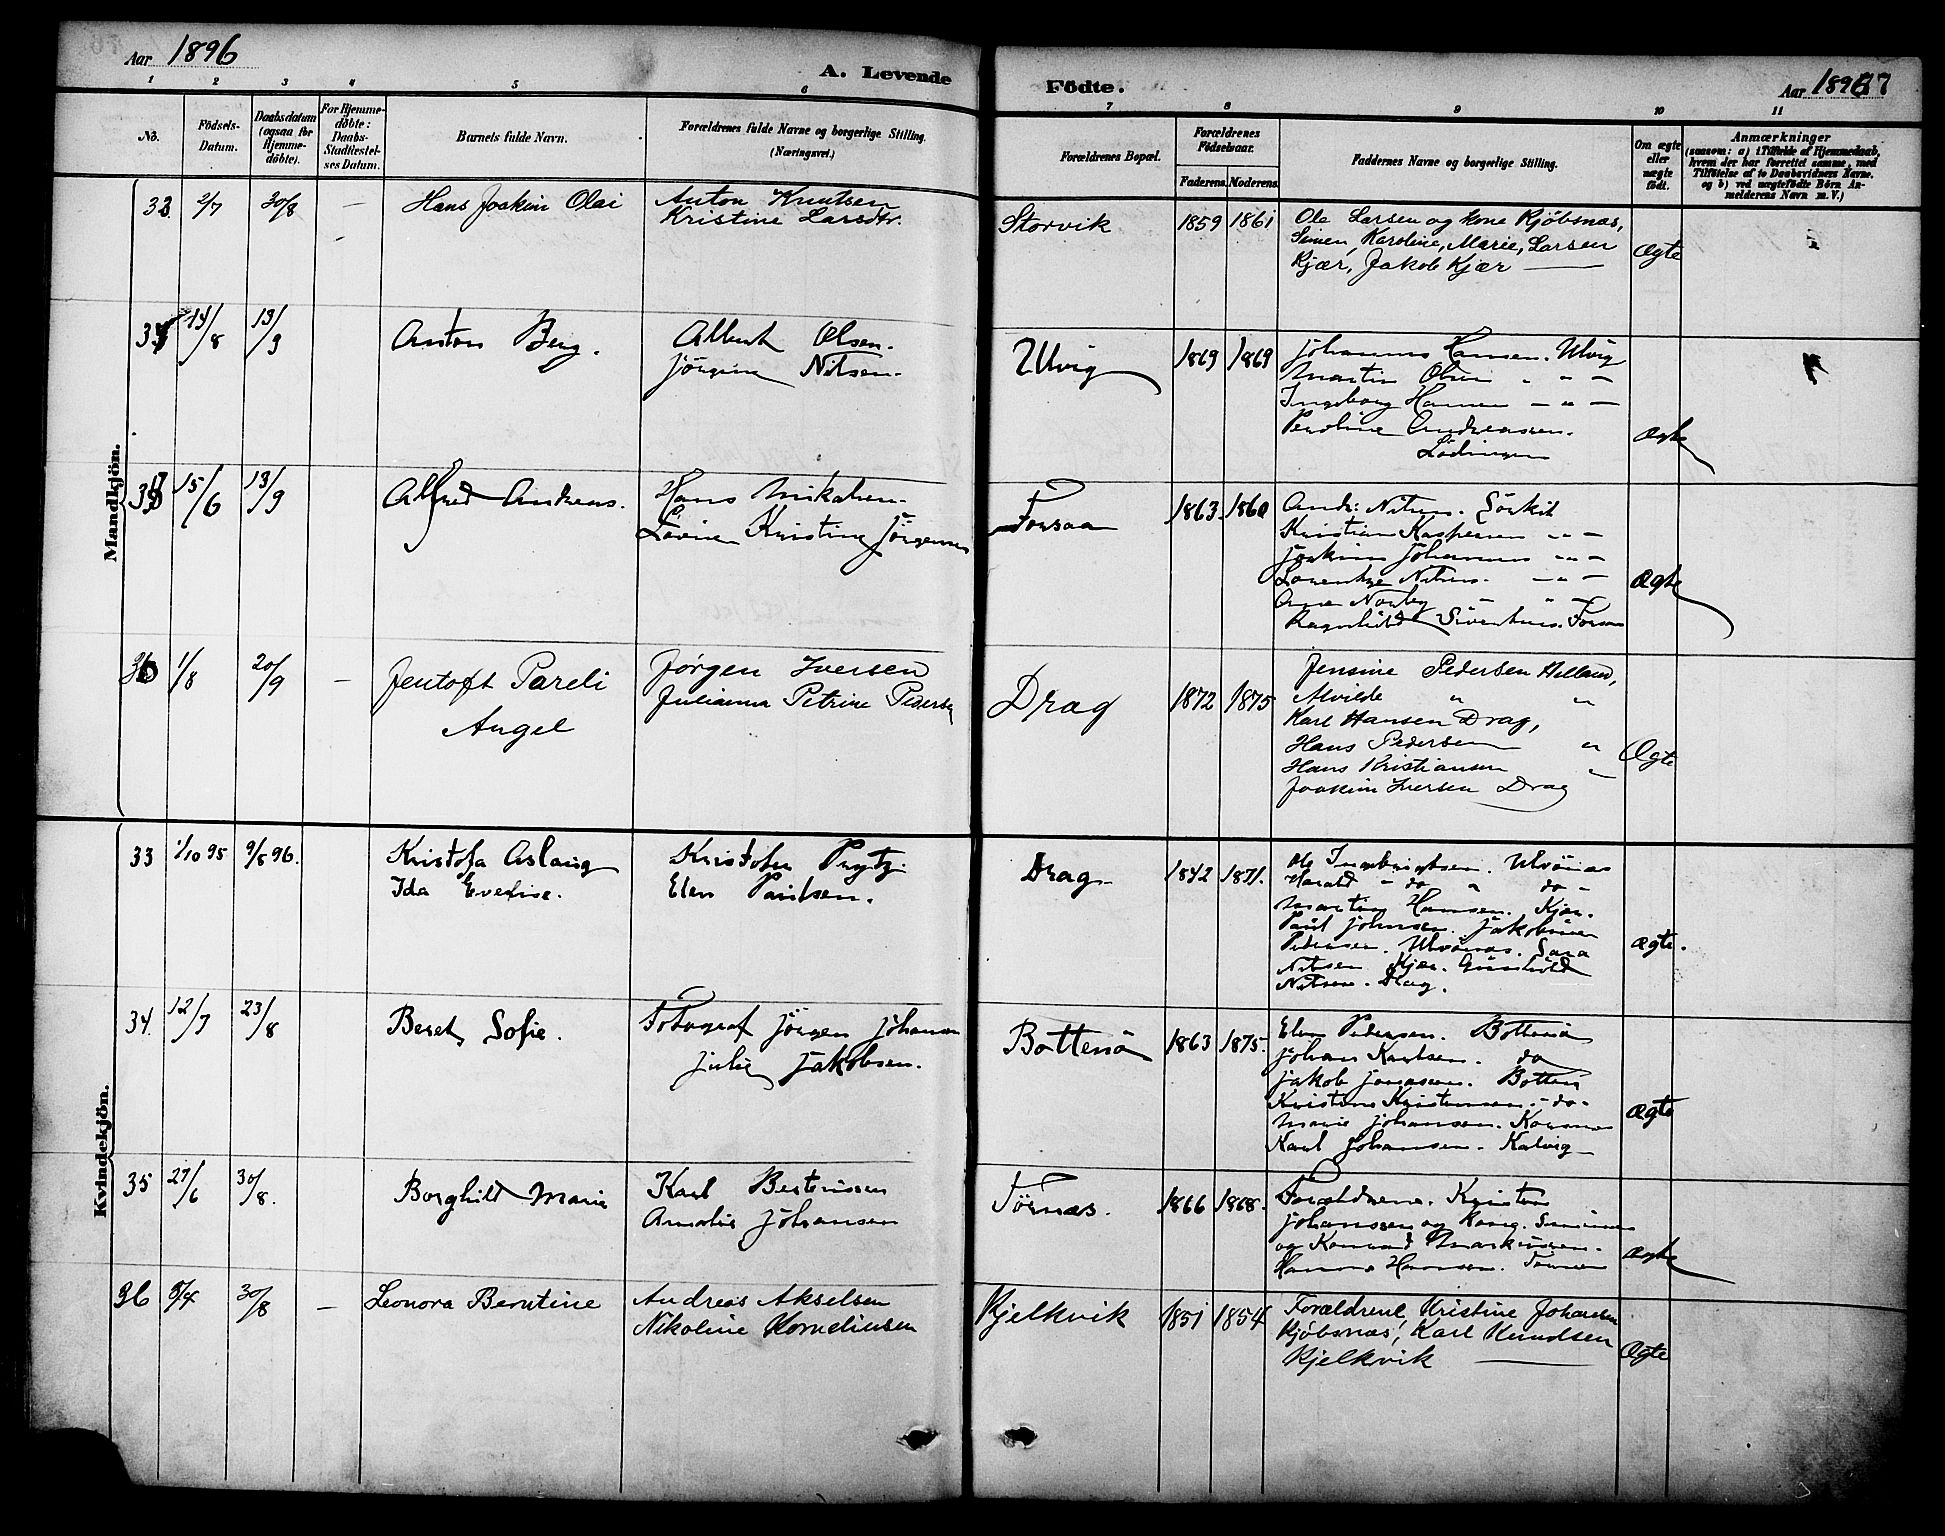 Aar 1896
A. Levende
Födte.
Aar 1896 87
1 2 3 4 5 6 7 8 9 10 11
No.
Födsels-
Datum.
Daabsdatum
(ogsaa for
Hjemme-
döbte).
For Hjemme-
döbte:
Daabs-
Stadfæstel-
ses Datum.
Barnets fulde Navn.
Forældrenes fulde Navne og borgerlige Stilling.
(Næringsvei.)
Forældrenes Bopæl.
Forældrenes
Födselsaar.
Faderens. Moderens.
Faddernes Navne og borgerlige Stilling.
Om ægte
eller
uægte
födt.
Anmærkninger
(saasom: a) i Tilfælde af Hjemmedaab,
hvem der har forrettet samme, med
Tilföielse af to Daabsvidners Navne.
og b) ved uægtefödte Börn An-
melderens Navn m. V.)
Mandkjön.
33 2/7 30/8 — Hans Joakim Olai
Anton Knutsen
Kristine Larsdtr.
Storvik 1859 1861
Ole Larsen og kone Kjöbsnæs,
Simen, Karoline, Marie, Larsen
Kjær, Jakob Kjær —
Ægte
34 14/8 13/9 Anton Berg.
Albert Olsen.
Jörgine Nilsen.
Ulvig 1869 1869
Johannes Hansen. Ulvig
Martin Olsen " " —
Ingeborg Hansen — " —
Peroline Andreassen.
Lödingen
Ægte
35 15/6 13/9 Alfred Andreas.
Hans Mikalsen.
Lovise Kristine Jörgensen
Forsaa 1863. 1860
Andr: Nilsen. Sörkil
Kristian Kaspersen " " —
Joakim Johannes " " —
Lorentze Nilsen. — " —
Anna Norberg — " —
Ragnhild Sivertsen. Forsaa
Ægte
36 1/8 20/9 — Jentoft Pareli
Angel
Jørgen Iversen
Julianna Petrine Pedersen
Drag 1872 1875
Jensine Pedersen Helland,
Alvilde " "
Karl Hansen Drag,
Hans Pedersen "
Hans Kristiansen "
Joakim Iversen Drag
Ægte
Kvindekjön.
33 1/10 95 9/8 96. Kristofa Aslaug
Ida Eveline.
Kristofer Prytz
Elen Paulsen.
Drag 1842 1871.
Ole Ingebrigtsen. Ulvönæs
Harald - do " do -
Martin Hansen. Kjær.
Paul Johnsen. Jakobine
Pedersen. Ulvönæs. Sara
Nilsen. Kjær. Gunhild
Nilsen. Drag.
Ægte.
34. 12/7 23/8 Beret Sofie.
Fotograf Jörgen Johansen
Julie Jakobsen.
Bottenö 1863 1875.
Elen Pedersen. Bottenö
Johan Karlsen. do
Jakob Jonassen. Botten
Kristine Kristensen. - do -
Marie Johansen. Korsnæs
Karl Johansen. Kalvig
Ægte
35 27/6 30/8. Borghild Marie
Karl Bertinssen
Amalie Johansen
Törnæs. 1866 1868.
Forældrene. Kristen
Johanssen og
og Konrad Markussen.
Hanna Hansen.
Ægte
36 9/4 30/8 — Leonora Berntine
Andreas Akselsen
Nikoline Korneliusen
Kjelkvik 1851 1854
Forældrene, Kristine Johansen
Kjöbsnæs, Karl Knudsen
Kjelkvik —
Ægte